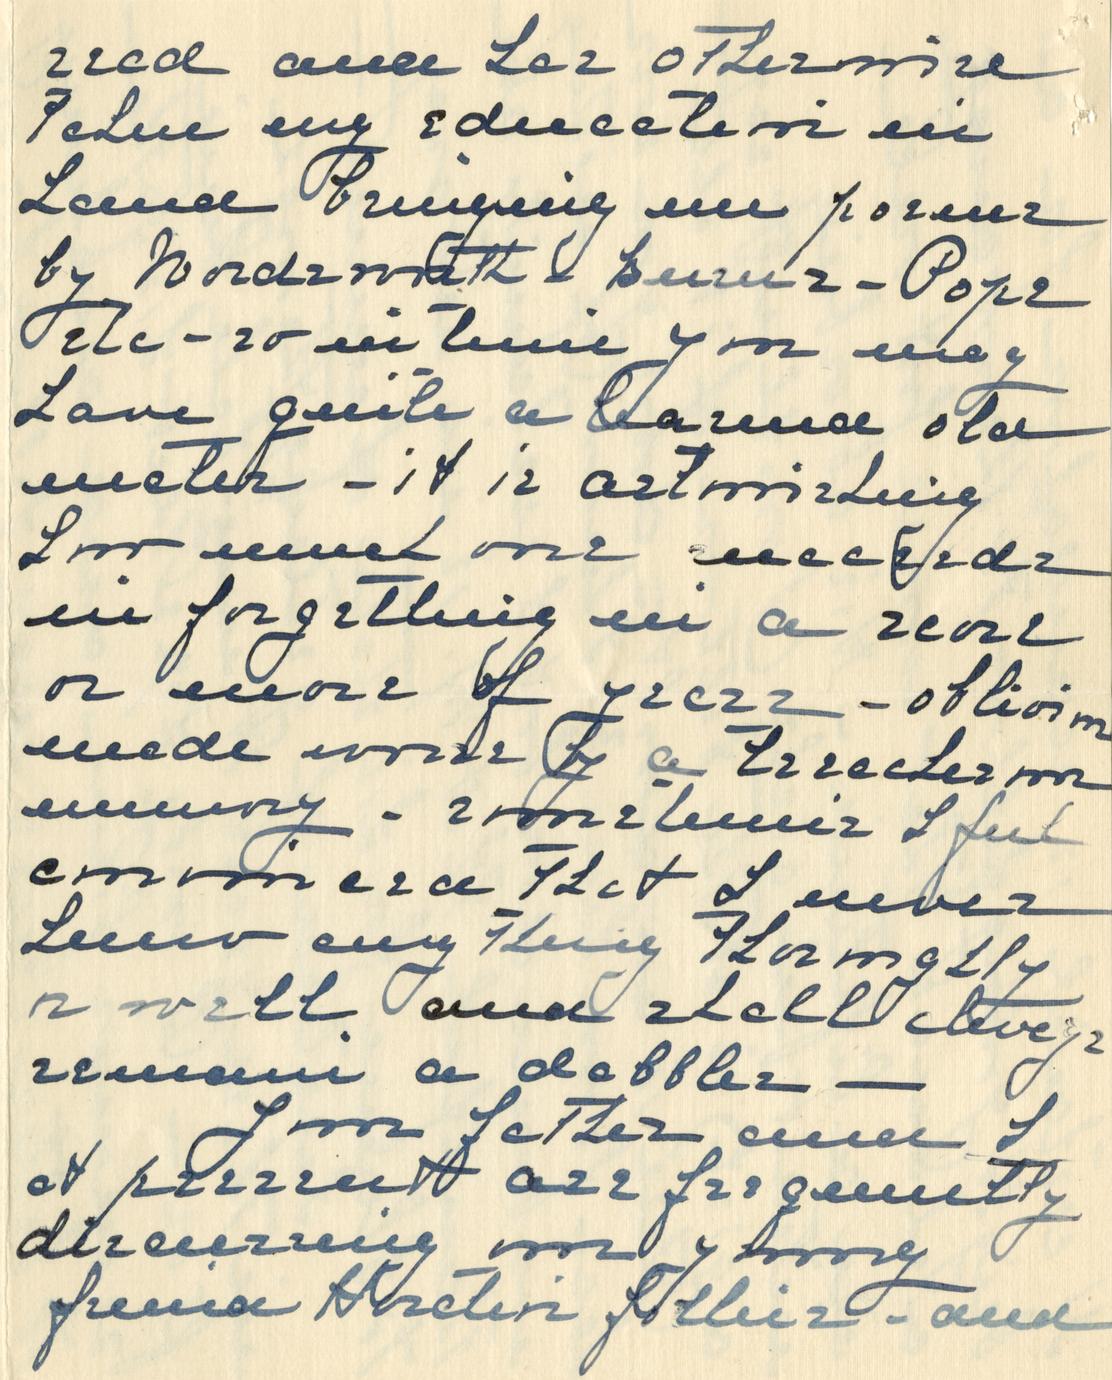 read and has otherwise
taken my education in
hand bringing me poems
by Wordsworth - Burns - Pope
etc - so in time you may
have quite a learned old
mater - it is astonishing
how much one succeeds
in forgetting in a score
or more of years - oblivion
made worse by a treacherous
memory - sometimes I feel
convinced that I never
knew any thing thoroughly
or well and shall always
remain a dabbler —
Your father and I
at present are frequently
discussing our young
friend Horatio - and